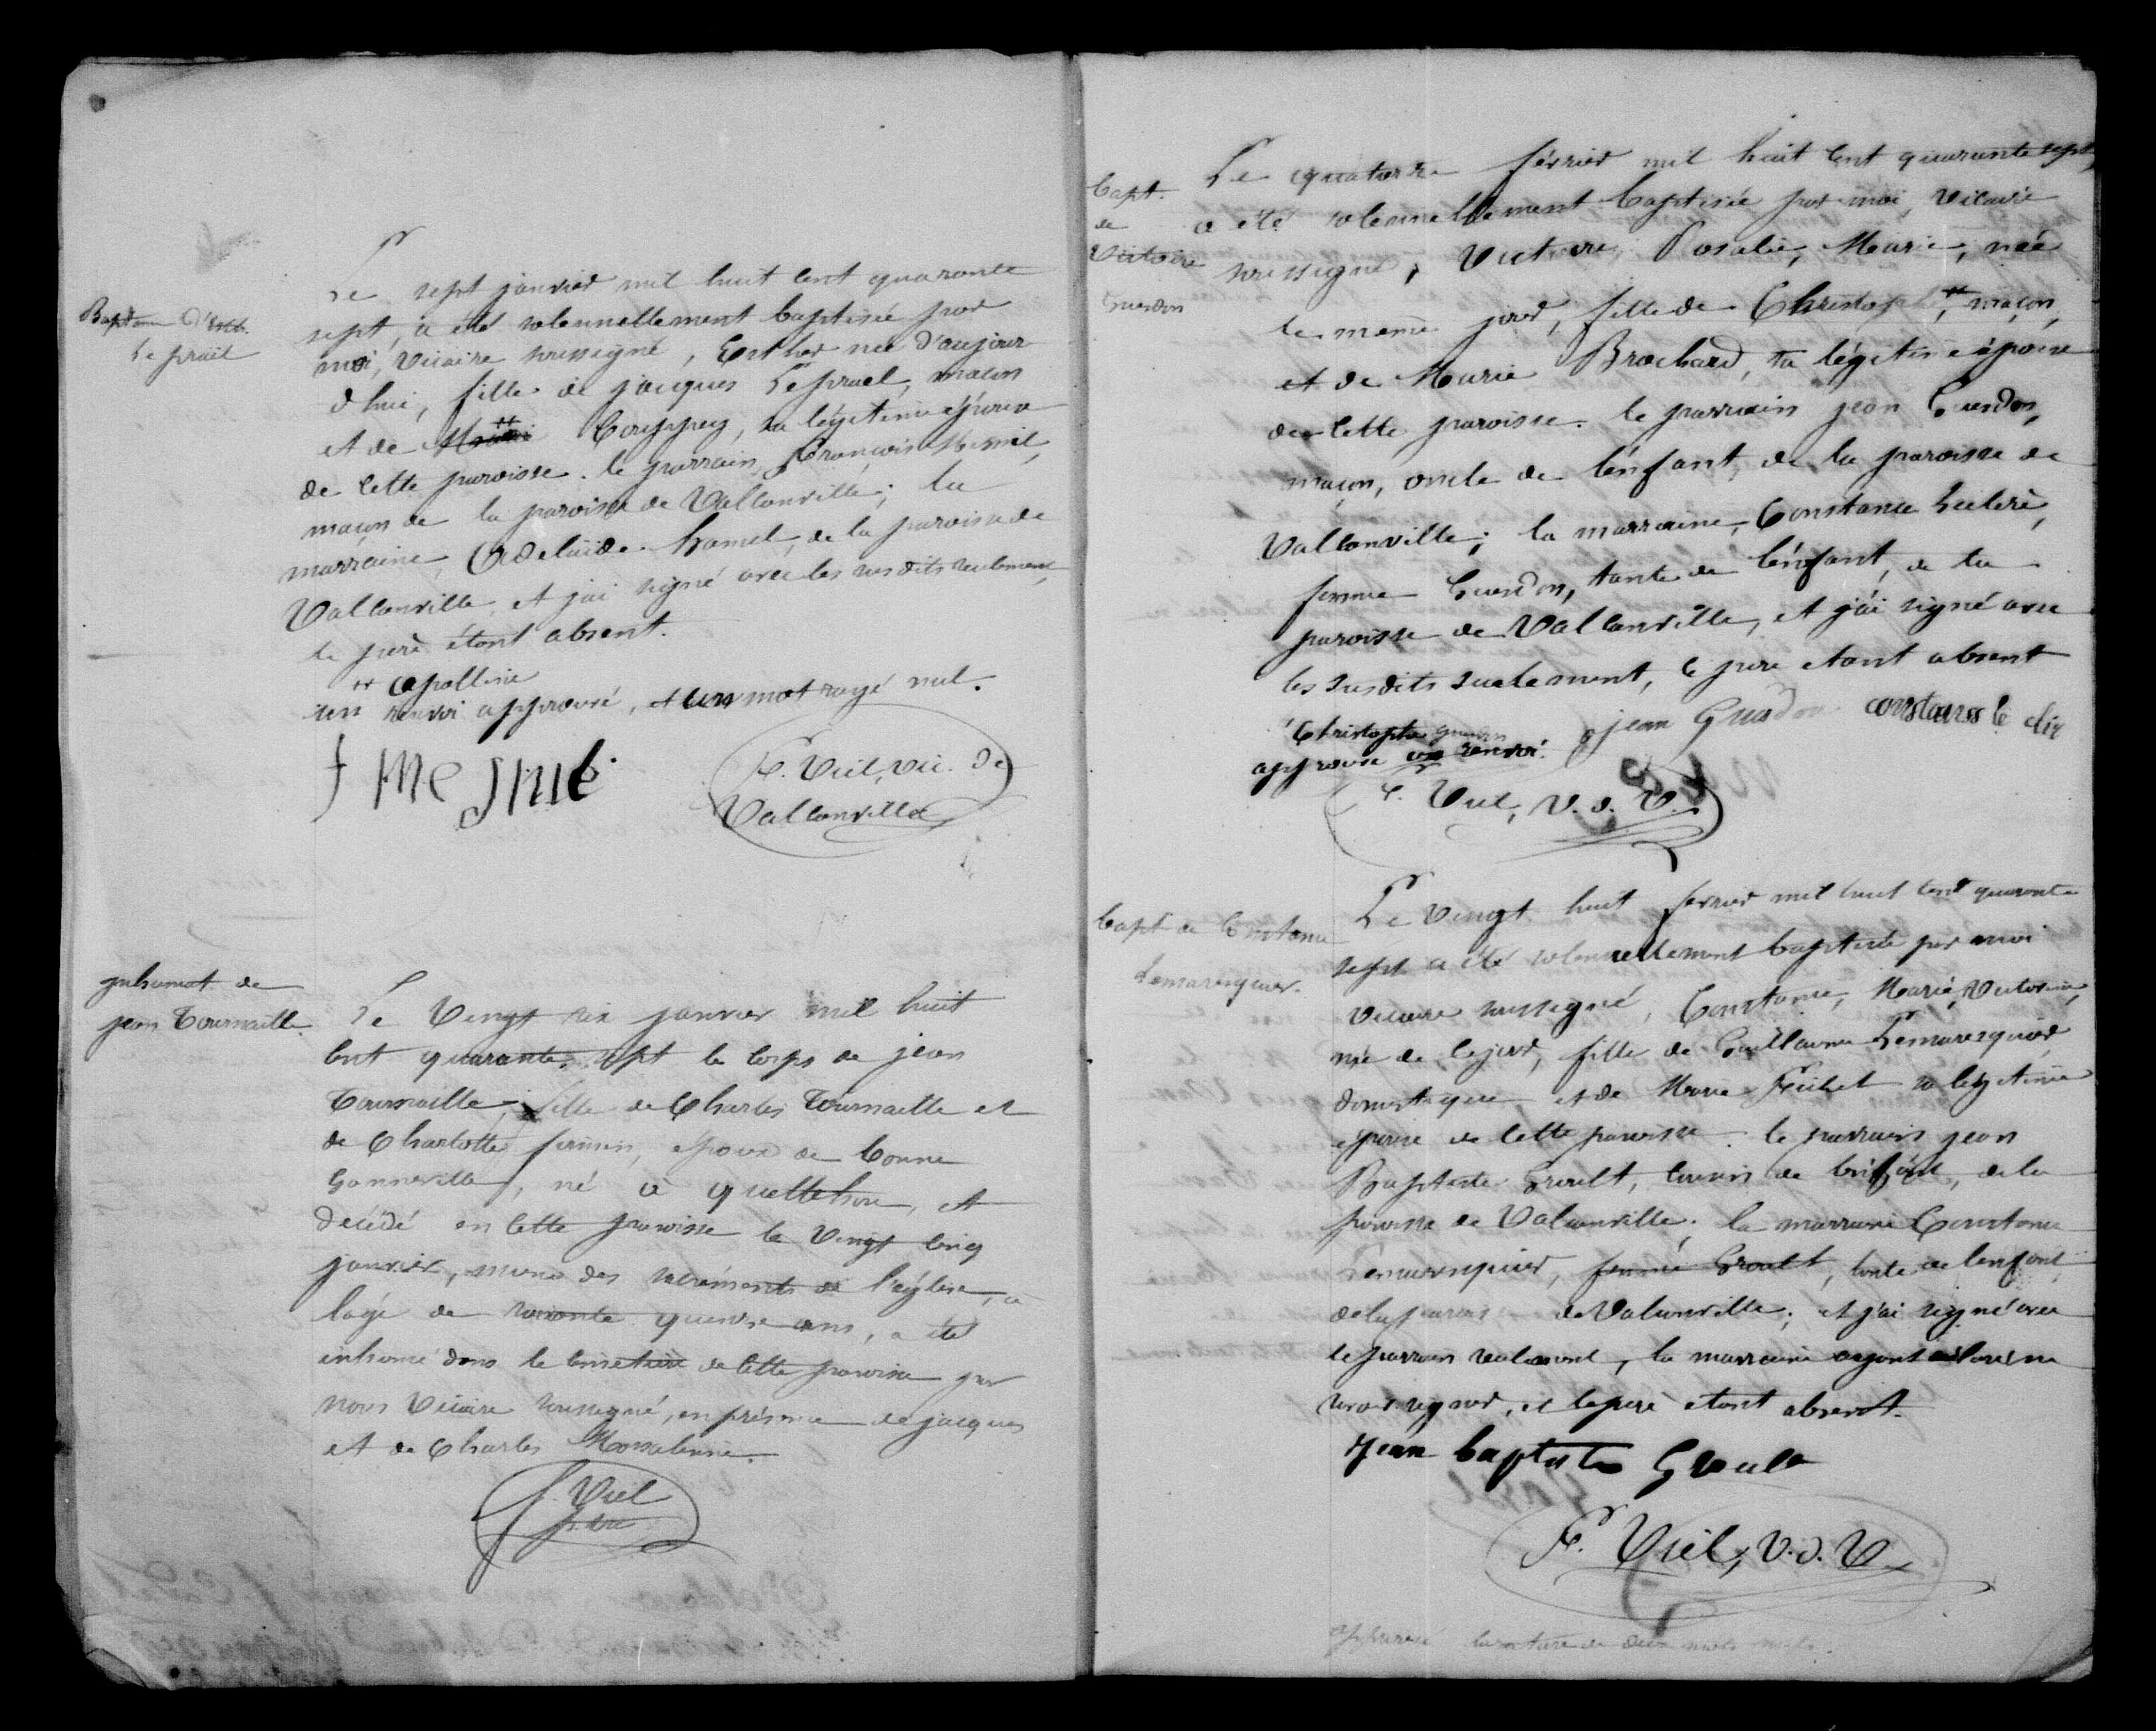 Baptême d'Esth.
Le prael
Le sept janvier mil huit cent quarante
sept, a été solennellement baptisée par
moi, vicaire soussigné, Esther née d'aujour
d'hui, fille de jacques Leprael, maçon
et de ** Couppey, sa légitime épouse
de cette paroisse. le parrain, François Mesnil,
maçon de la paroisse de Valcanville; la
marraine, Adelaïde hamel, de la paroisse de
Valcanville, et j'ai signé avec les susdits seulement,
le père étant absent.
** apolline
un renvoi approuvé, et un mot rayé nul.
f mesnil
F. Viel, vic. de
Valcanville
inhumat. de
jean Tournaille.
Le Vingt six janvier mil huit
cent quarante sept le corps de jean
Tournaille, fils de Charles Tournaille et
de Charlotte firmin, époux de bonne
Gonneville, né à quettehou, et
décédé en cette paroisse le vingt cinq
janvier, muni des sacrements de l'église, à
l'age de soixante quinze ans, a été
inhumé dans le cimetiere de cette paroisse par
nous vicaire soussigné, en présence de jacques
et de Charles
f. Viel
ptre
bapt.
de
Victoire
Guesdon
Le quatorze février mil huit cent quarante sept,
a été solennellement baptisée par moi, vicaire
soussigné, Victoire, Rosalie, Marie, née
le même jour, fille de Christophe**, maçon,
et de Marie Brochard, sa légitime épouse
de cette paroisse. le parrain jean Guesdon,
maçon, oncle de l'enfant, de la paroisse de
Valcanville; la marraine, Constance Leclerc,
femme Guesdon, tante de l'enfant, de la
paroisse de Valcanville, et j'ai signé avec
les susdits seulement, le pere etant absent
Christophe guesdon
approuvé un renvoi.
jean Guesdon constance le cler
F. Viel, V. d. V.
bapt. de Constance
Lemaresquier.
Le vingt huit fevrier mil huit cent quarante
sept a été solennellement baptisée par moi
vicaire soussigné, Constance, Marie, Victorine,
née de ce jour, fille de Guillaume Lemaresquier,
domestique et de Marie sa légitime
épouse de cette paroisse. le parrain jean
Baptiste Groult, cousin de l'enfant, de la
paroisse de Valcanville; la marraine Constance
Lemaresquier, femme Groult, tante de l'enfant,
de la paroisse de Valcanville; et j'ai signé avec
le parrain seulement, la marraine ayant déclaré ne
savoir signer, et le père étant absent.
Jean baptiste Groult
F. Viel, V. d. V
approuvé la rature de deux mots nuls.